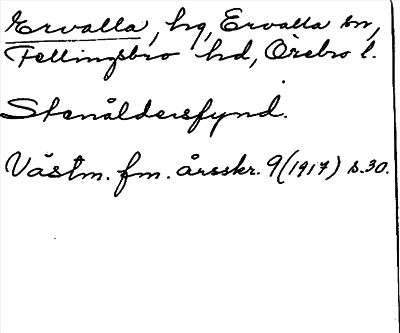 Ervalla, hg, Ervalla sn,
Fellingsbro hd, Örebro l.
Stenåldersfynd.
Västm. fm. årsskr. 9(1917) s.30.